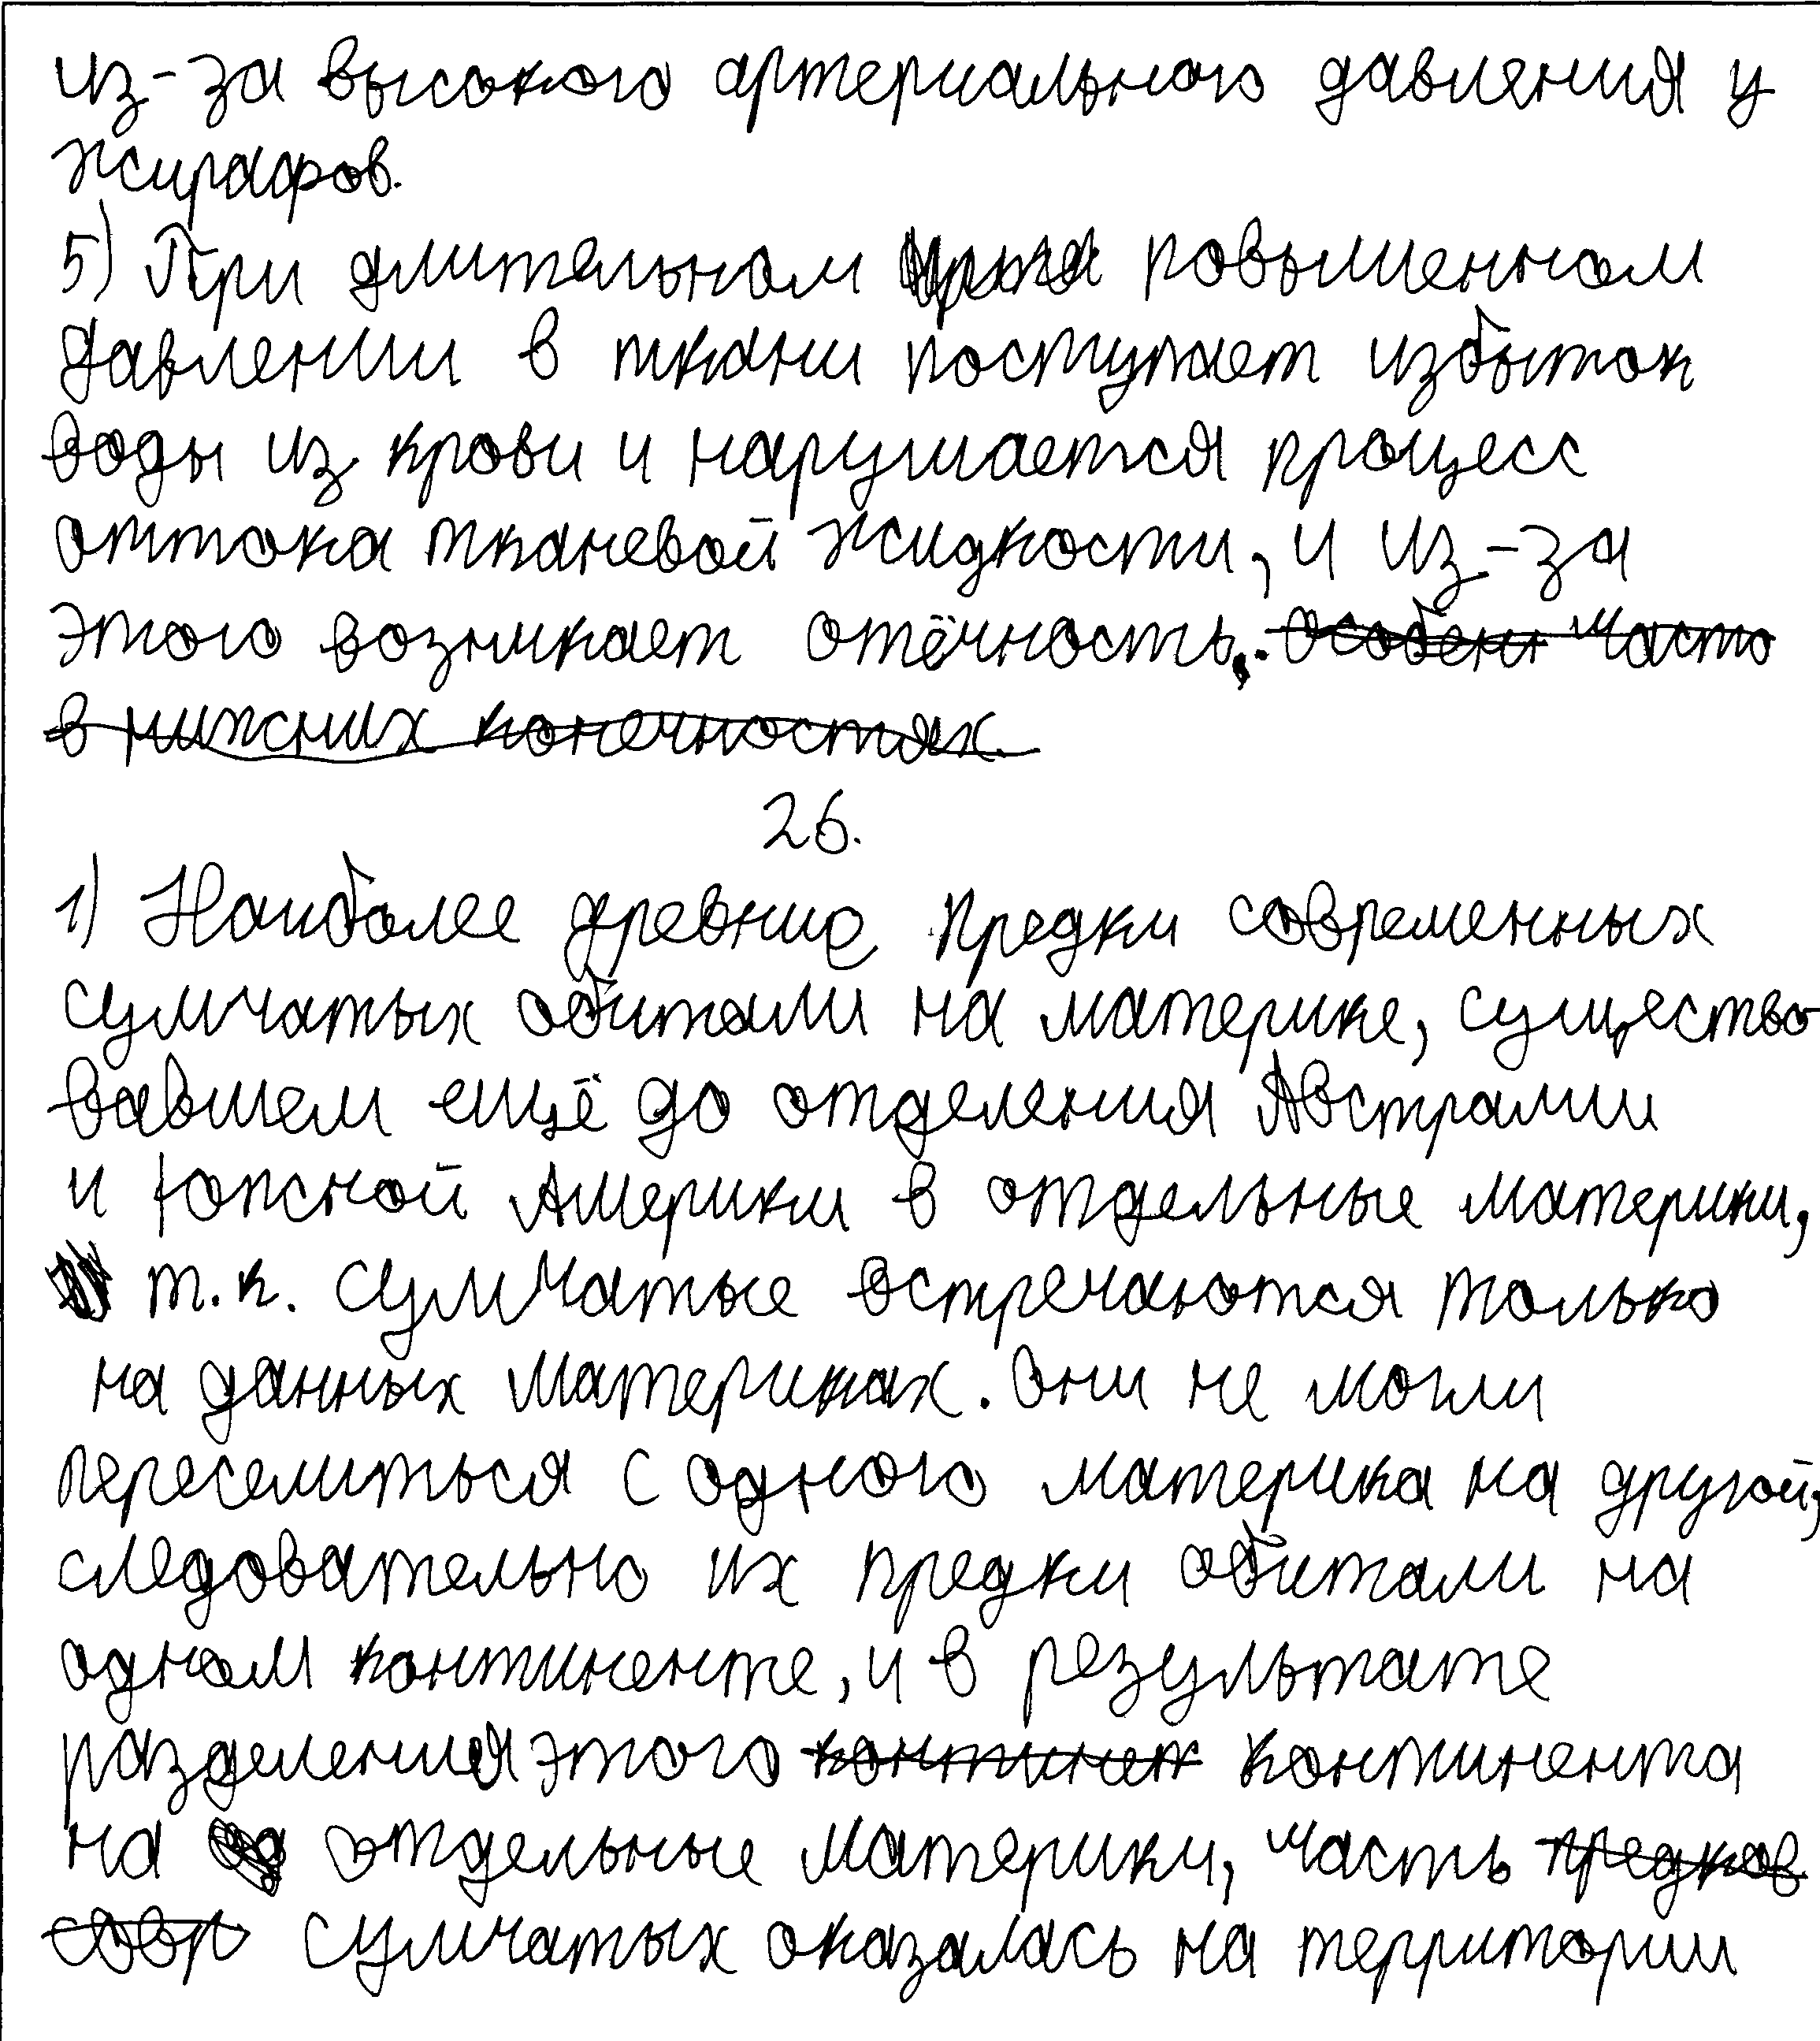 из-за высокого артериального давления у
жирафов.
5) При длительном повышенном
давлении в ткани поступает избыток
воды из крови и нарушается процесс
оттока тканевой жидкости, и из-за
этого возникает отёчность. особен часто
в нижних конечностях.
26.
1) Наиболее древние предки современных
сумчатых обитали на материке, существо
вавшем ещё до отделения Австралии
и Южной Америки в отдельные материки,
т.к. сумчатые встречаются только
на данных материках. Они не могли
переселиться с одного материка на другой,
следовательно их предки обитали на
одном континенте, и в результате
разделения этого континен континента
на отдельные материки, часть предков
совр сумчатых оказалась на территории